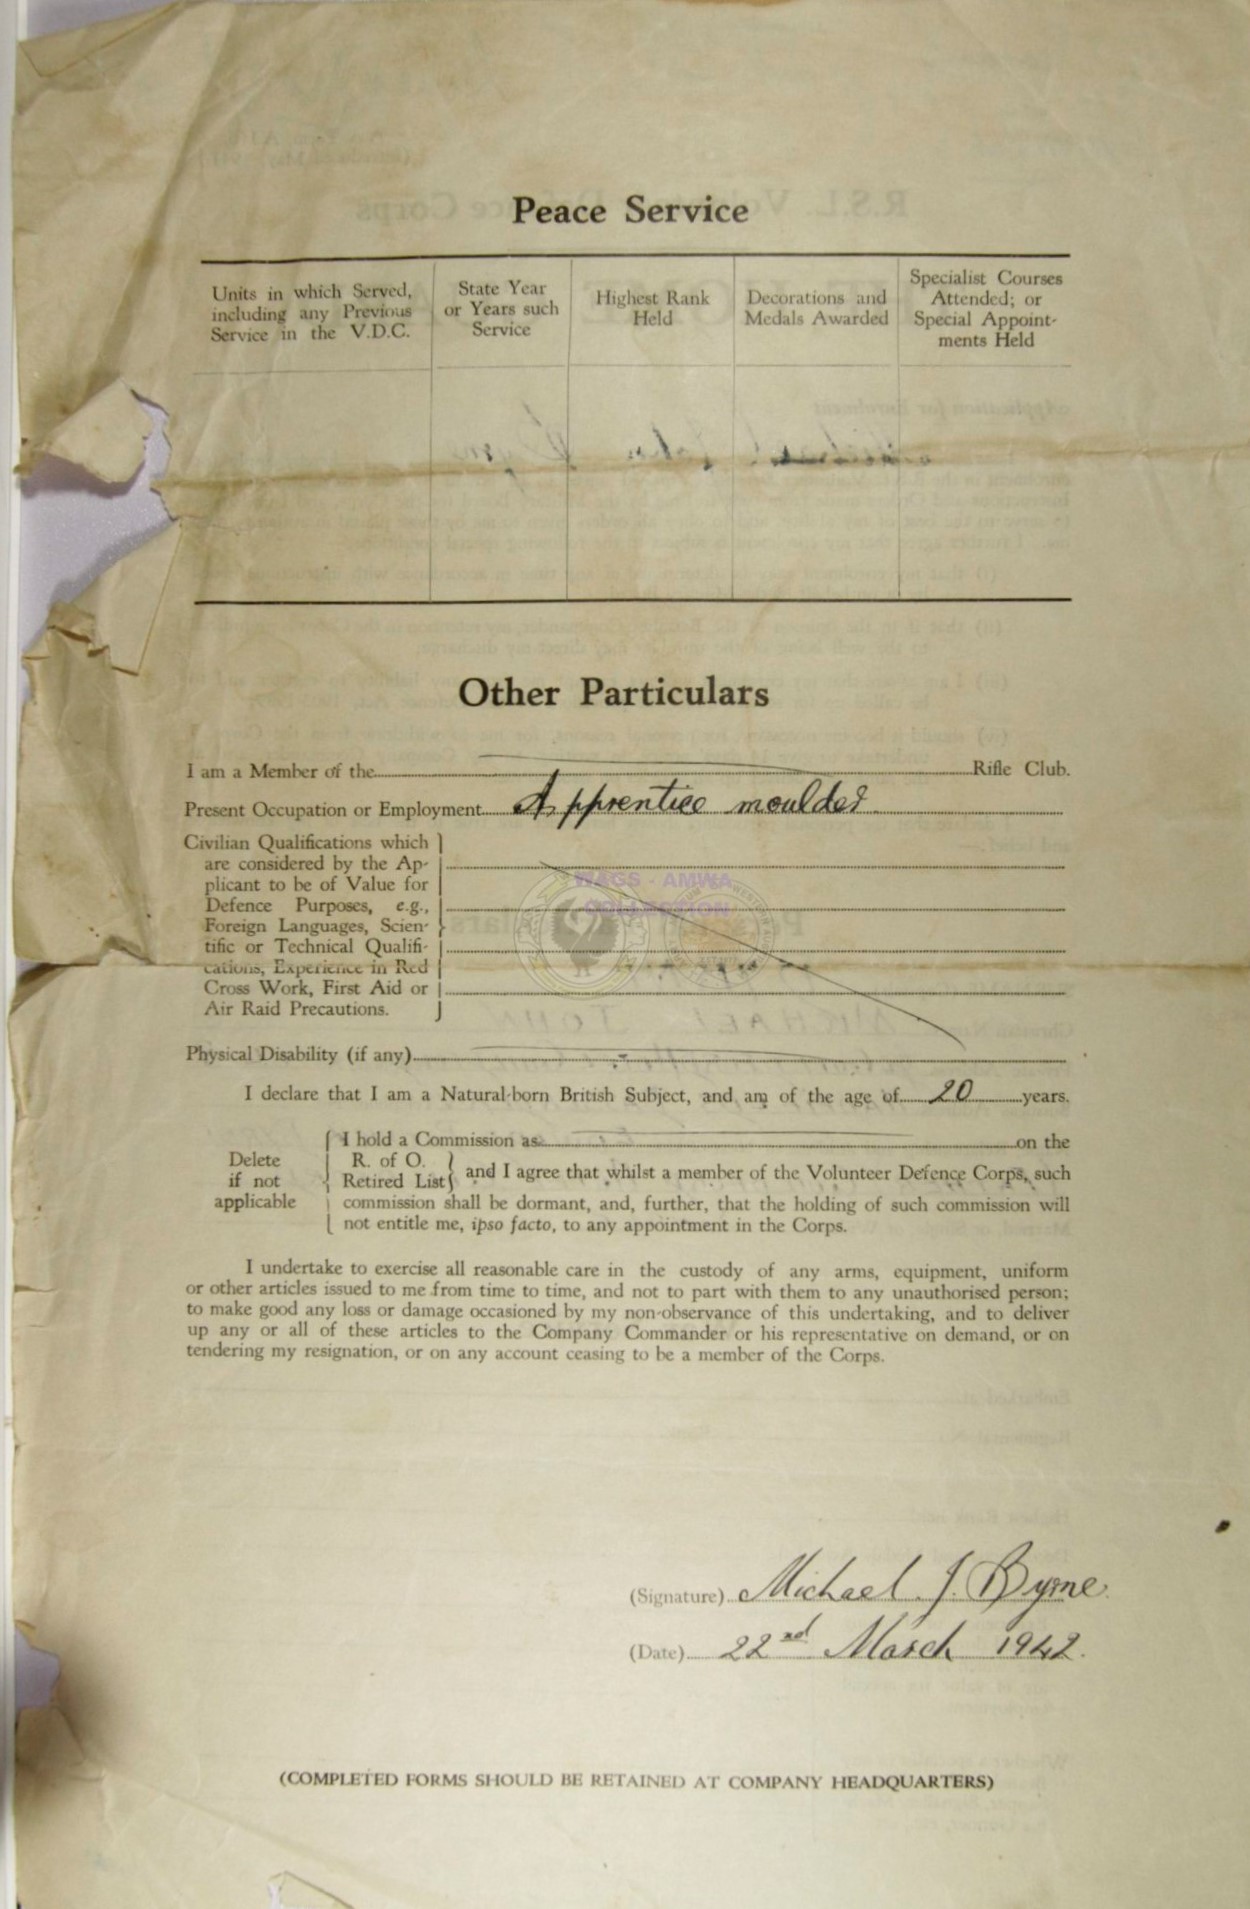 Peace Service
Units in which Served, including any Previous Service in the V.D.C.
State Year or Years such Service
Highest Rank Held
Decorations and Medals Awarded
Specialist Courses Attended; or Special Appointments Held
Other Particulars
I am a Member of the Rifle Club.
Present Occupation or Employment Apprentice moulder
Civilian Qualifications which
are considered by the Ap-
plicant to be of Value for
Defence Purposes, e.g.,
Foreign Languages, Scien-
tific or Technical Qualifi-
cations, Experience in Red
Cross Work, First Aid or
Air Raid Precautions.
WAGS - AMWA
COLLECTION
Physical Disability (if any)
I declare that I am a Natural-born British Subject, and am of the age of 20 years.
Delete
if not
applicable
I hold a Commission as on the
R. of O.
Retired List
and I agree that whilst a member of the Volunteer Defence Corps, such
commission shall be dormant, and, further, that the holding of such commission will
not entitle me, ipso facto, to any appointment in the Corps.
I undertake to exercise all reasonable care in the custody of any arms, equipment, uniform
or other articles issued to me from time to time, and not to part with them to any unauthorised person;
to make good any loss or damage occasioned by my non-observance of this undertaking, and to deliver
up any or all of these articles to the Company Commander or his representative on demand, or on
tendering my resignation, or on any account ceasing to be a member of the Corps.
(Signature) Michael J. Byrne
(Date) 22nd March 1942.
(COMPLETED FORMS SHOULD BE RETAINED AT COMPANY HEADQUARTERS)